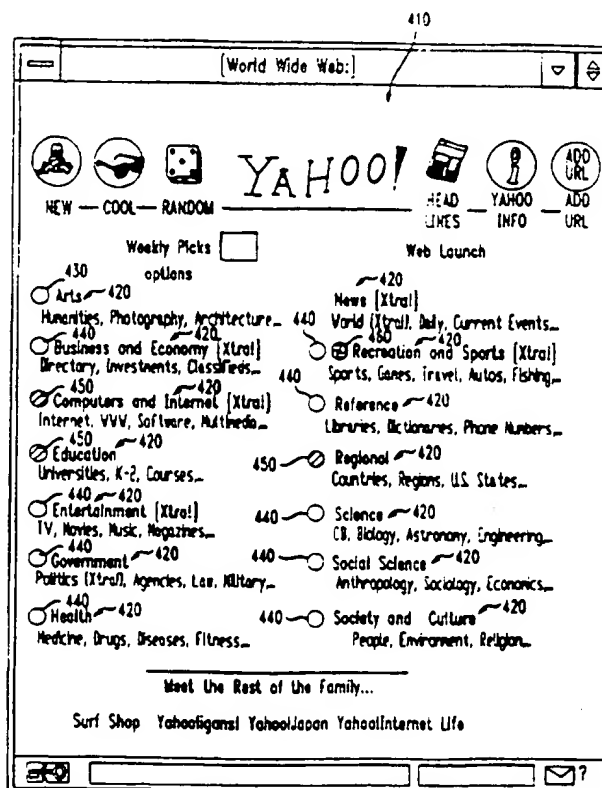 410
[World Wide Web:]
YAHOO!
ADD URL
NEW — COOL — RANDOM
HEAD LINES — YAHOO INFO — ADD URL
Weekly Picks
Web Launch
options
430
Arts 420
Humanities, Photography, Architecture...
440 420
Business and Economy [Xtra!]
Directory, Investments, Classifieds...
450 420
Computers and Internet [Xtra!]
Internet, VVV, Software, Multimedia...
450 420
Education
Universities, K-2, Courses...
440 420
Entertainment [Xtra!]
TV, Movies, Music, Magazines...
440 420
Government
Politics [Xtra!], Agencies, Law, Military...
440 420
Health
Medicine, Drugs, Diseases, Fitness...
420
News [Xtra!]
World [Xtra!], Daily, Current Events...
440 460 420
Recreation and Sports [Xtra!]
Sports, Games, Travel, Autos, Fishing...
440 Reference 420
Libraries, Dictionaries, Phone Numbers...
450 Regional 420
Countries, Regions, U.S. States...
440 Science 420
CB, Biology, Astronomy, Engineering...
440 Social Science 420
Anthropology, Sociology, Economics...
440 Society and Culture 420
People, Environment, Religion...
Meet the Rest of the Family...
Surf Shop Yahooligans! Yahoo!Japan Yahoo!Internet Life
?